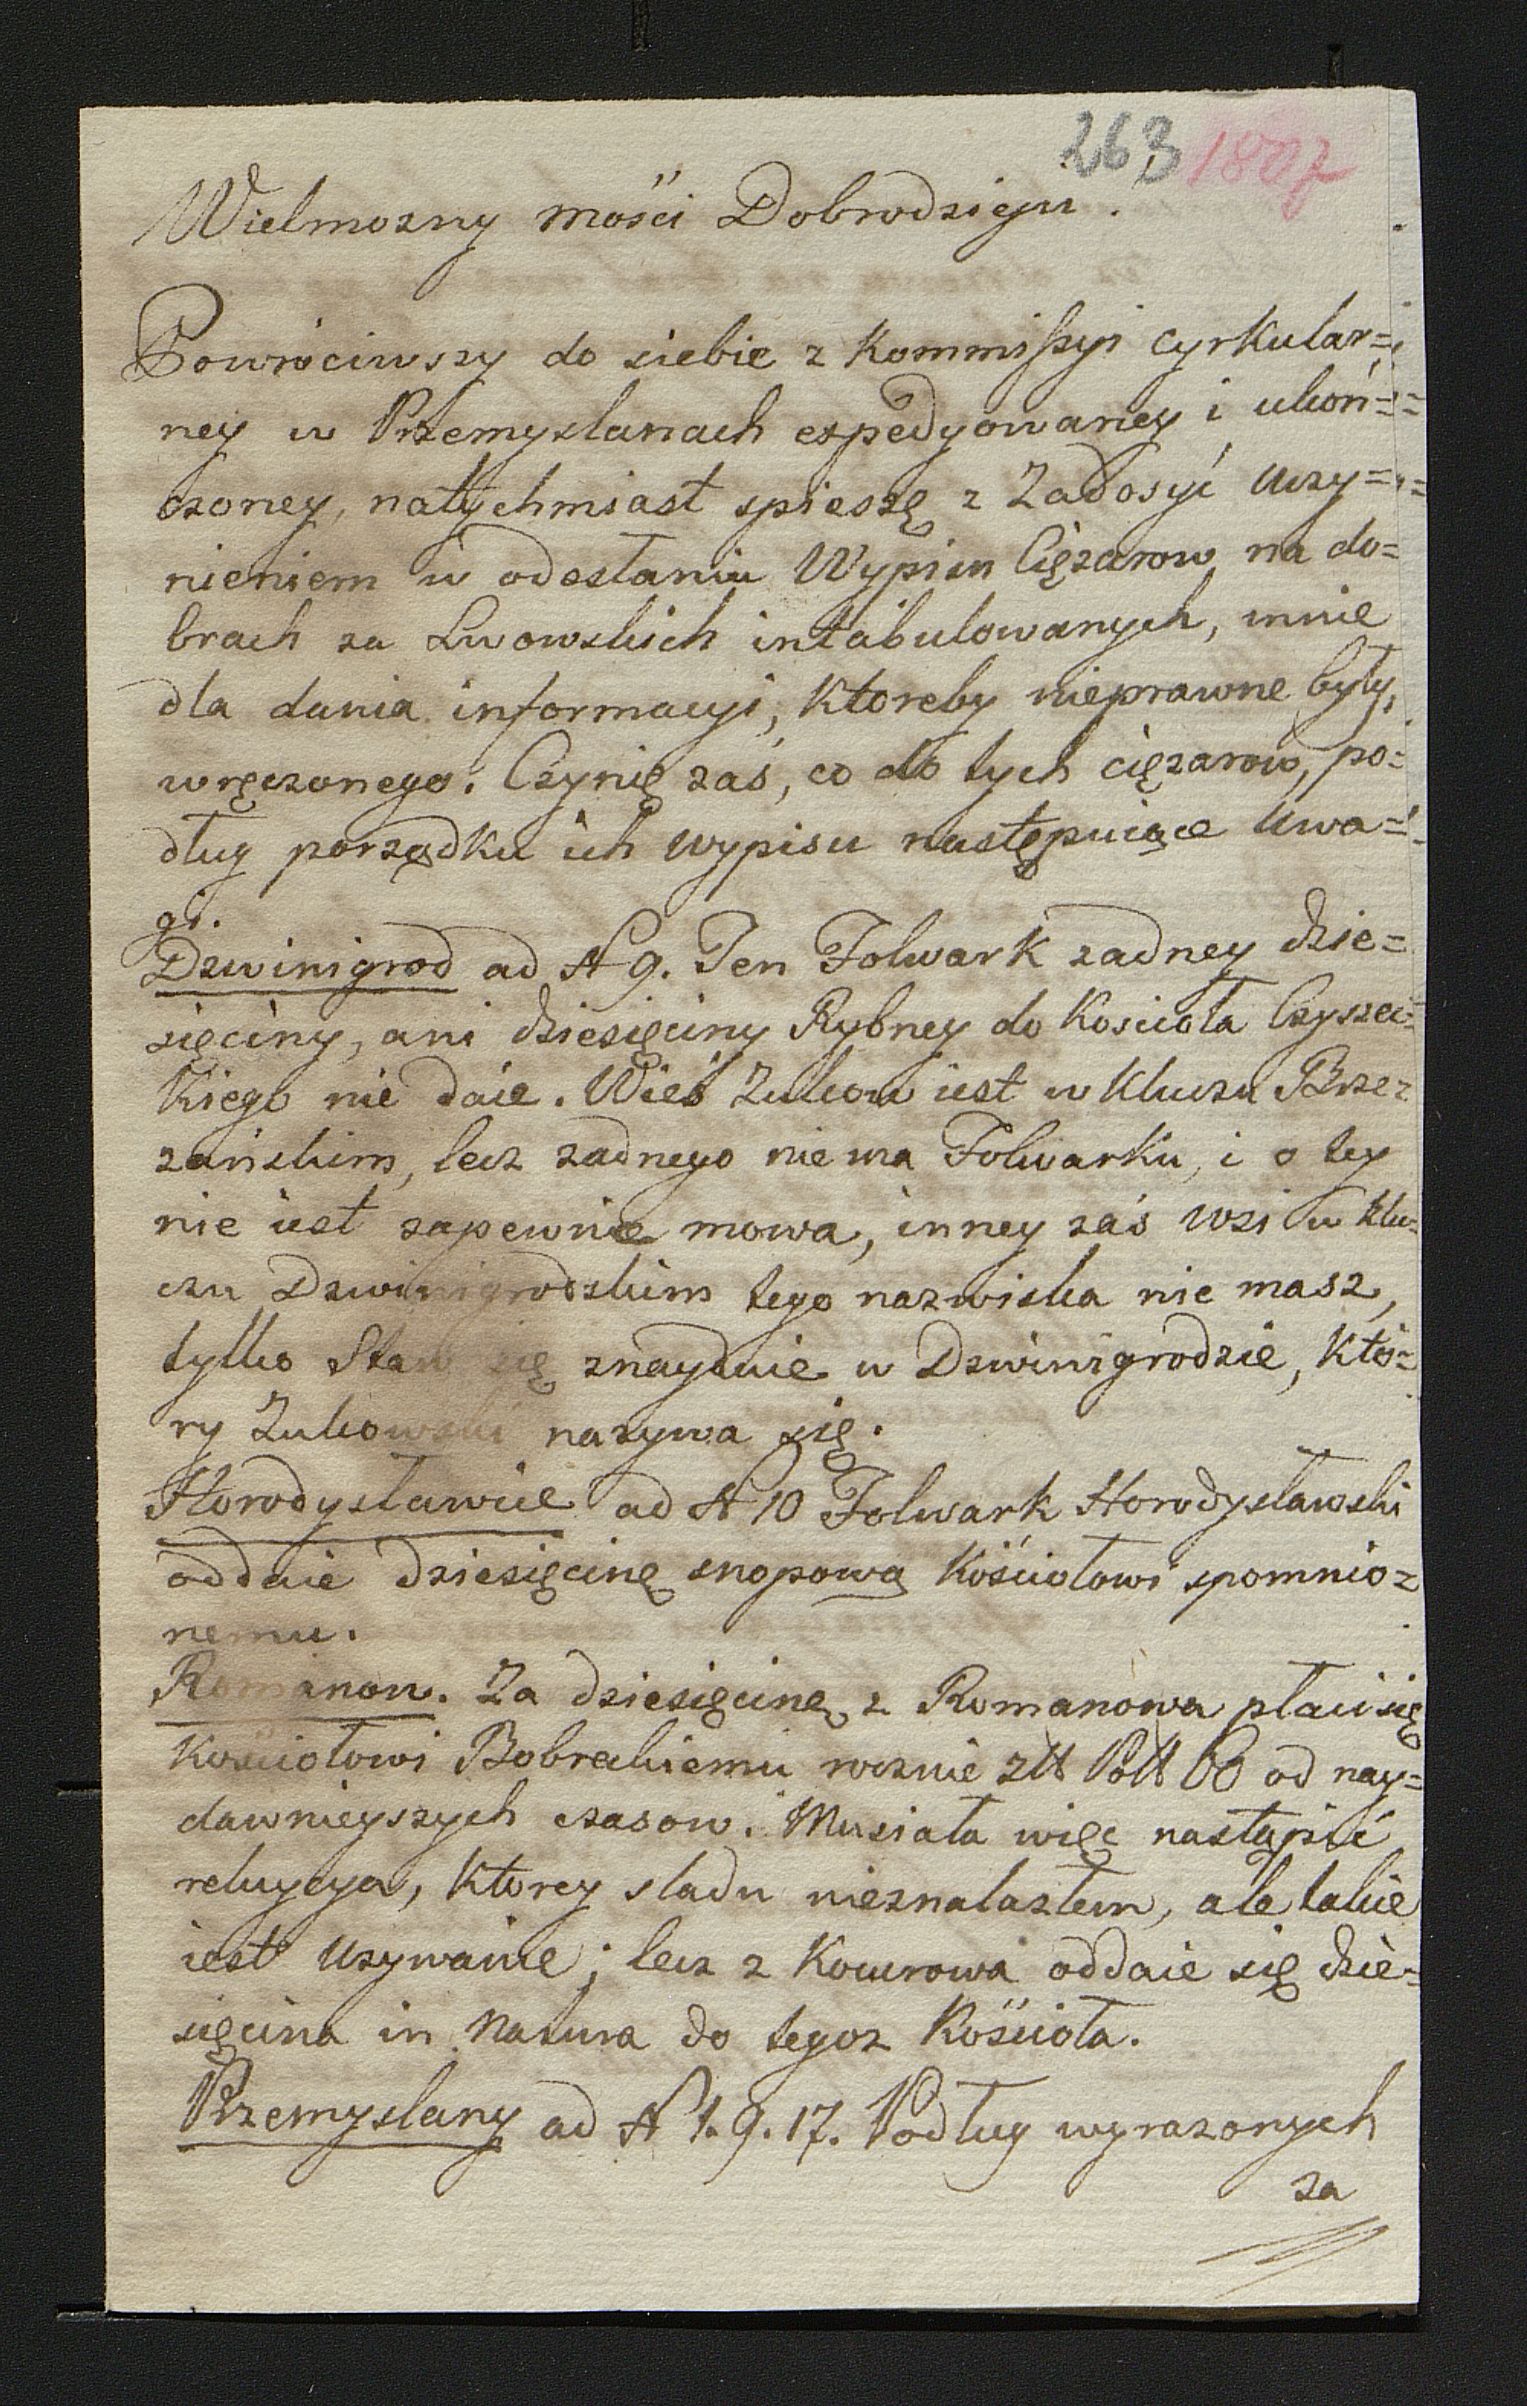 263 1807
Wielmozny mości Dobrodzieju.
Powróciwszy do siebie z Kommissyi cyrkular=
ney w Przemyslanach expedyowaney i ukoń=
czoney, natychmiast spieszę z Zadosyć uczy=
nieniem w odesłaniu Wypisu Ciężarow na do=
brach za Lwowskich intabulowanych, mnie
dla dania informacyi, ktoreby nieprawne były,
wręczonego. Czynię zaś, co do tych ciężarow, po=
dług porządku ich wypisu następuiące uwa=
gi.
Dzwinigrod ad N 9. Ten Folwark zadney dzie=
sięciny, ani dziesięciny Rybney do Kościoła Czyszec=
kiego nie daie. Wieś Zukow iest w kluczu Brze=
zańskim, lecz zadnego nie ma Folwarku, i o tey
nie iest zapewnie mowa, inney zaś wsi w klu=
czu Dzwinigrodzkim tego nazwiska nie masz,
tylko Staw się znayduie w Dzwinigrodzie, któ=
ry Zukowski nazywa się.
Horodysławice ad N 10 Folwark Horodysławski
oddaie dziesięcinę snopową Kościołowi spomnio=
nemu.
Romanow. Za dziesięcinę z Romanowa płaci się
Kościołowi Bobreckiemu rocznie złł Poll 60 od nay=
dawnieyszych czasow. Musiała więc nastąpić
relucya, ktorey sladu nieznalazłem, ale takie
iest uzywanie; lecz z Kocurowa oddaie się dzie=
sięcina in natura do tegoz Kościoła.
Przemyslany ad N 1. 9. 17. Podług wyrazonych
za